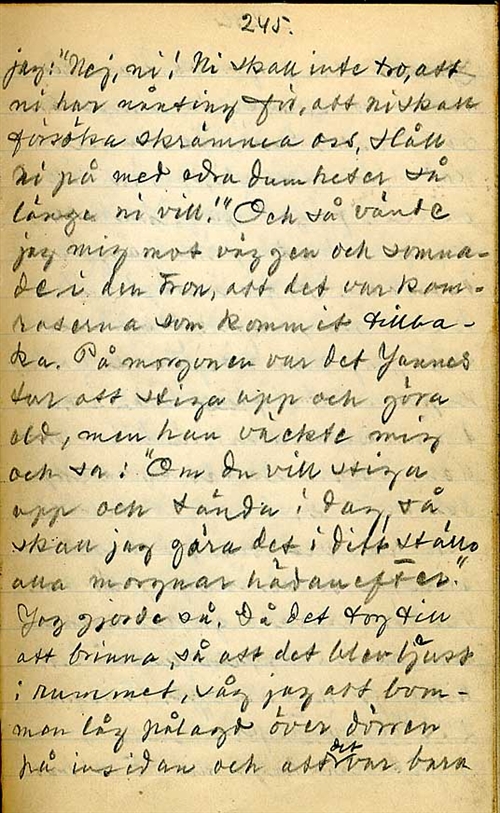 245.
jag: "Nej, ni! Ni skall inte tro, att
ni har nånting för, att ni skall
försöka skrämma oss, Håll
ni på med edra dumheter så
länge ni vill!" Och så vände
jag mig mot väggen och somna-
de i den tron, att det var kam-
raterna som kommit tillba-
ka. På morgonen var det Jannes
tur att stiga upp och göra
eld, men han väckte mig
och sa: "Om du vill stiga
upp och tända i dag, så
skall jag göra det i ditt ställe
alla morgnar hädanefter."
Jag gjorde så. Då det tog till
att brinna, så att det blev ljust
i rummet, såg jag att bom-
men låg pålagd över dörren
på insidan och att det var bara